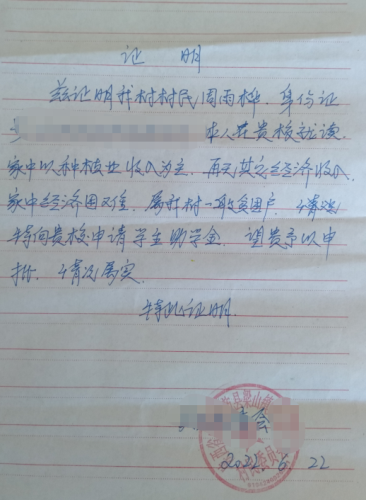 证 明
兹证明我村村民周雨桦，身份证
本人在贵校就读，
家中以种植业收入为主，再无其它经济收入，
家中经济困难，属我村一般贫困户，情况
特向贵校申请学生助学金，望贵予以申
批，情况属实。
特此证明.
2022. 6. 22